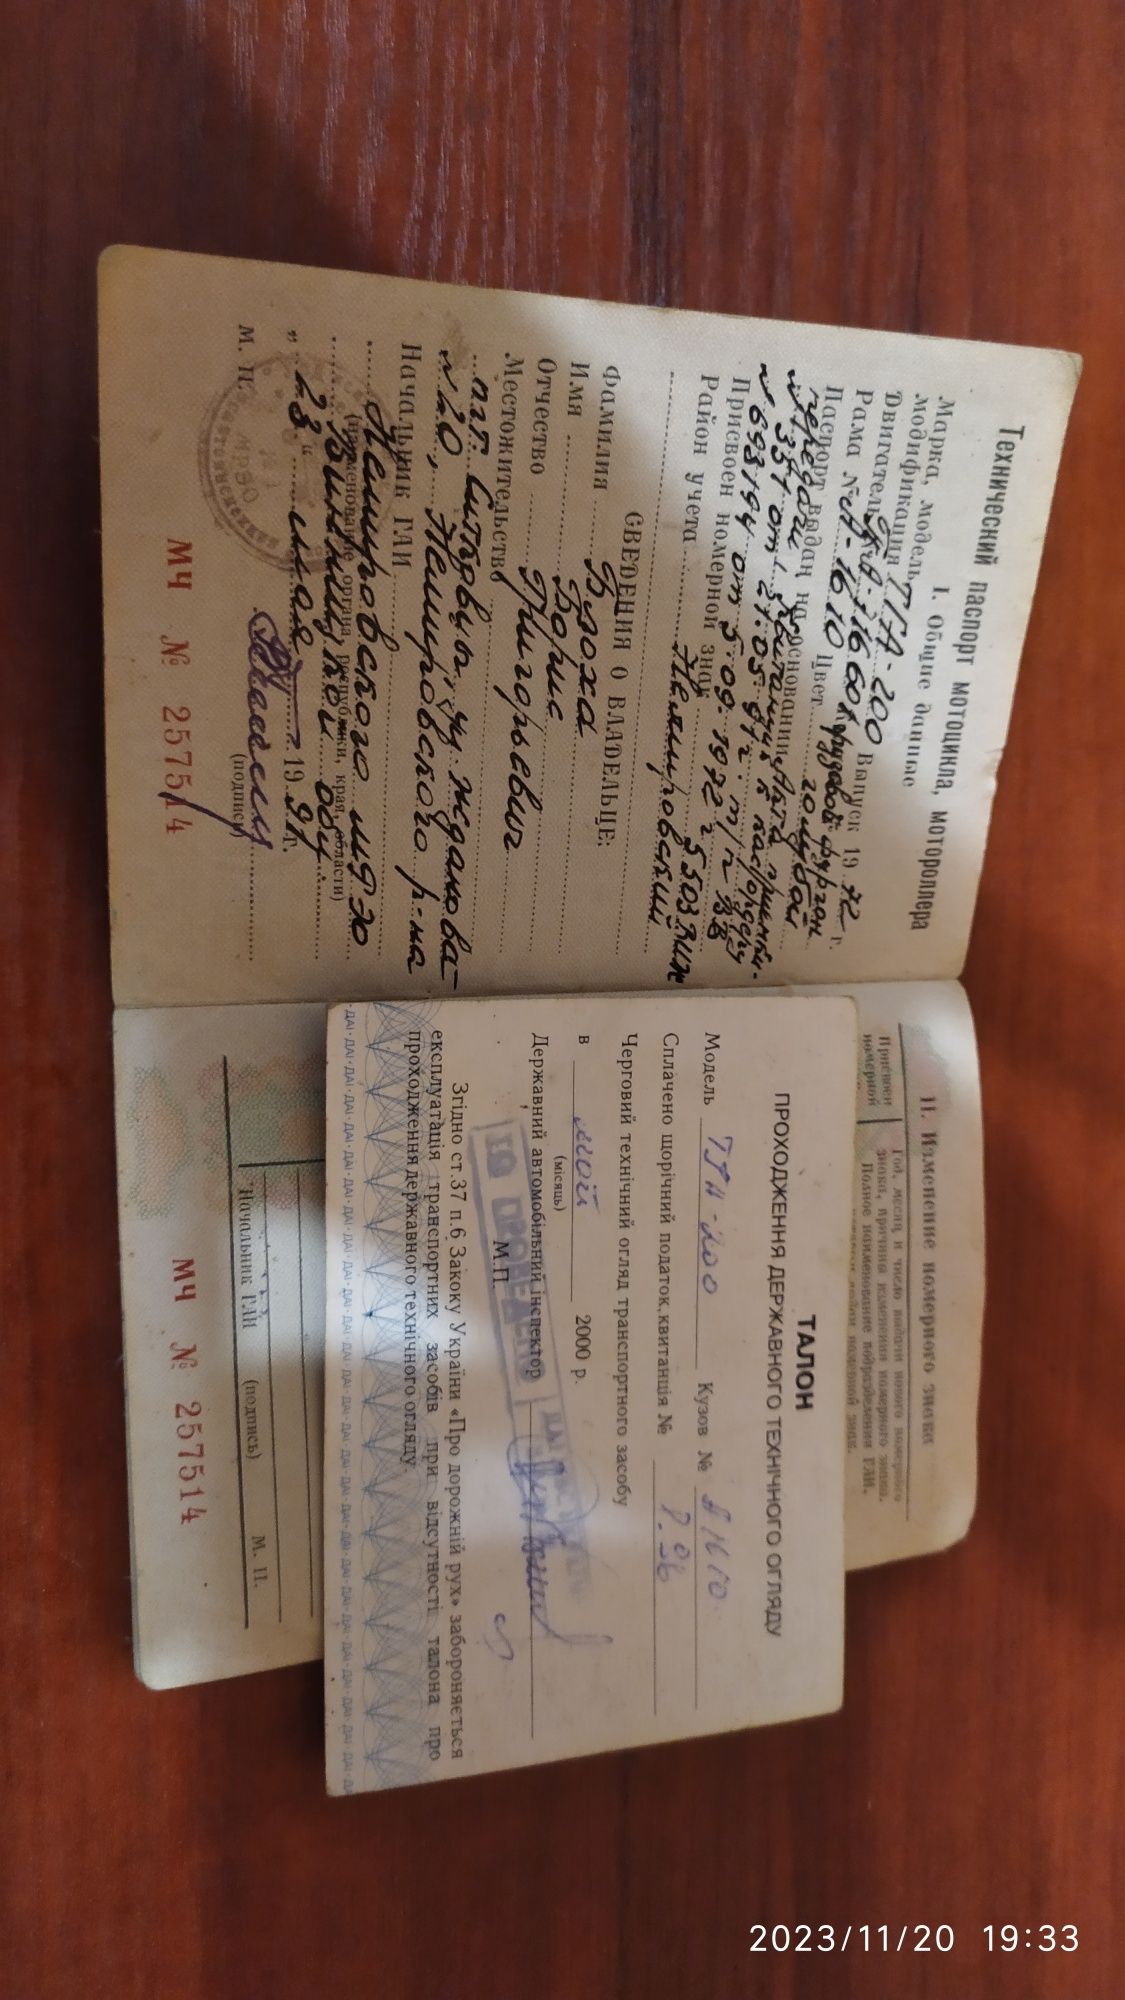 Технический паспорт мотоцикла, мотороллера
I. Общие данные
Марка, модель,
модификация ТГА-200 Выпуск 19 72 г.
Двигатель № В-11660 грузовой фургон
Рама № А-1610 Цвет голубой
Паспорт выдан на основании Акта приемки-
передачи Квитанция к кас/ордеру
№ 351 от 21.05.91г. т/п ВВ
№ 693194 от 5.09.1972 г.
Присвоен номерной знак 5503 ВИЖ
Район учета Немировский
СВЕДЕНИЯ О ВЛАДЕЛЬЦЕ:
Фамилия
Имя Борис
Отчество Григорьевич
Местожительство
пгт. Ситковцы, ул. Жданова-
№ 20, Немировского р-на
Начальник ГАИ
Немировского МРЭО
(наименование органа, республики, края, области)
Винницкой обл.
„ 23 “ мая 19 91 г.
М. П. (подпись)
МРЭО
МЧ № 257514
II. Изменение номерного знака
Присвоен
номерной
Год, месяц и число выдачи нового номерного
знака, причина изменения номерного знака.
Полное наименование подразделения ГАИ,
ТАЛОН
ПРОХОДЖЕННЯ ДЕРЖАВНОГО ТЕХНІЧНОГО ОГЛЯДУ
Модель ТГА-200 Кузов № А1610
Сплачено щорічний податок,квитанція № Р.96
Черговий технічний огляд транспортного засобу
в май 2000 р.
(місяць)
Державний автомобільний інспектор
М.П.
ТО ПРОВЕДЕНО
Згідно ст.37 п.6 Закоку України «Про дорожній рух» забороняється
експлуатація транспортних засобів при відсутності талона про
проходження державного технічного огляду.
ДАІ · ДАІ · ДАІ · ДАІ · ДАІ · ДАІ · ДАІ · ДАІ · ДАІ · ДАІ · ДАІ · ДАІ · ДАІ · ДАІ · ДАІ · ДАІ · ДАІ
Начальник ГАИ (подпись) М. П.
МЧ № 257514
2023/11/20 19:33